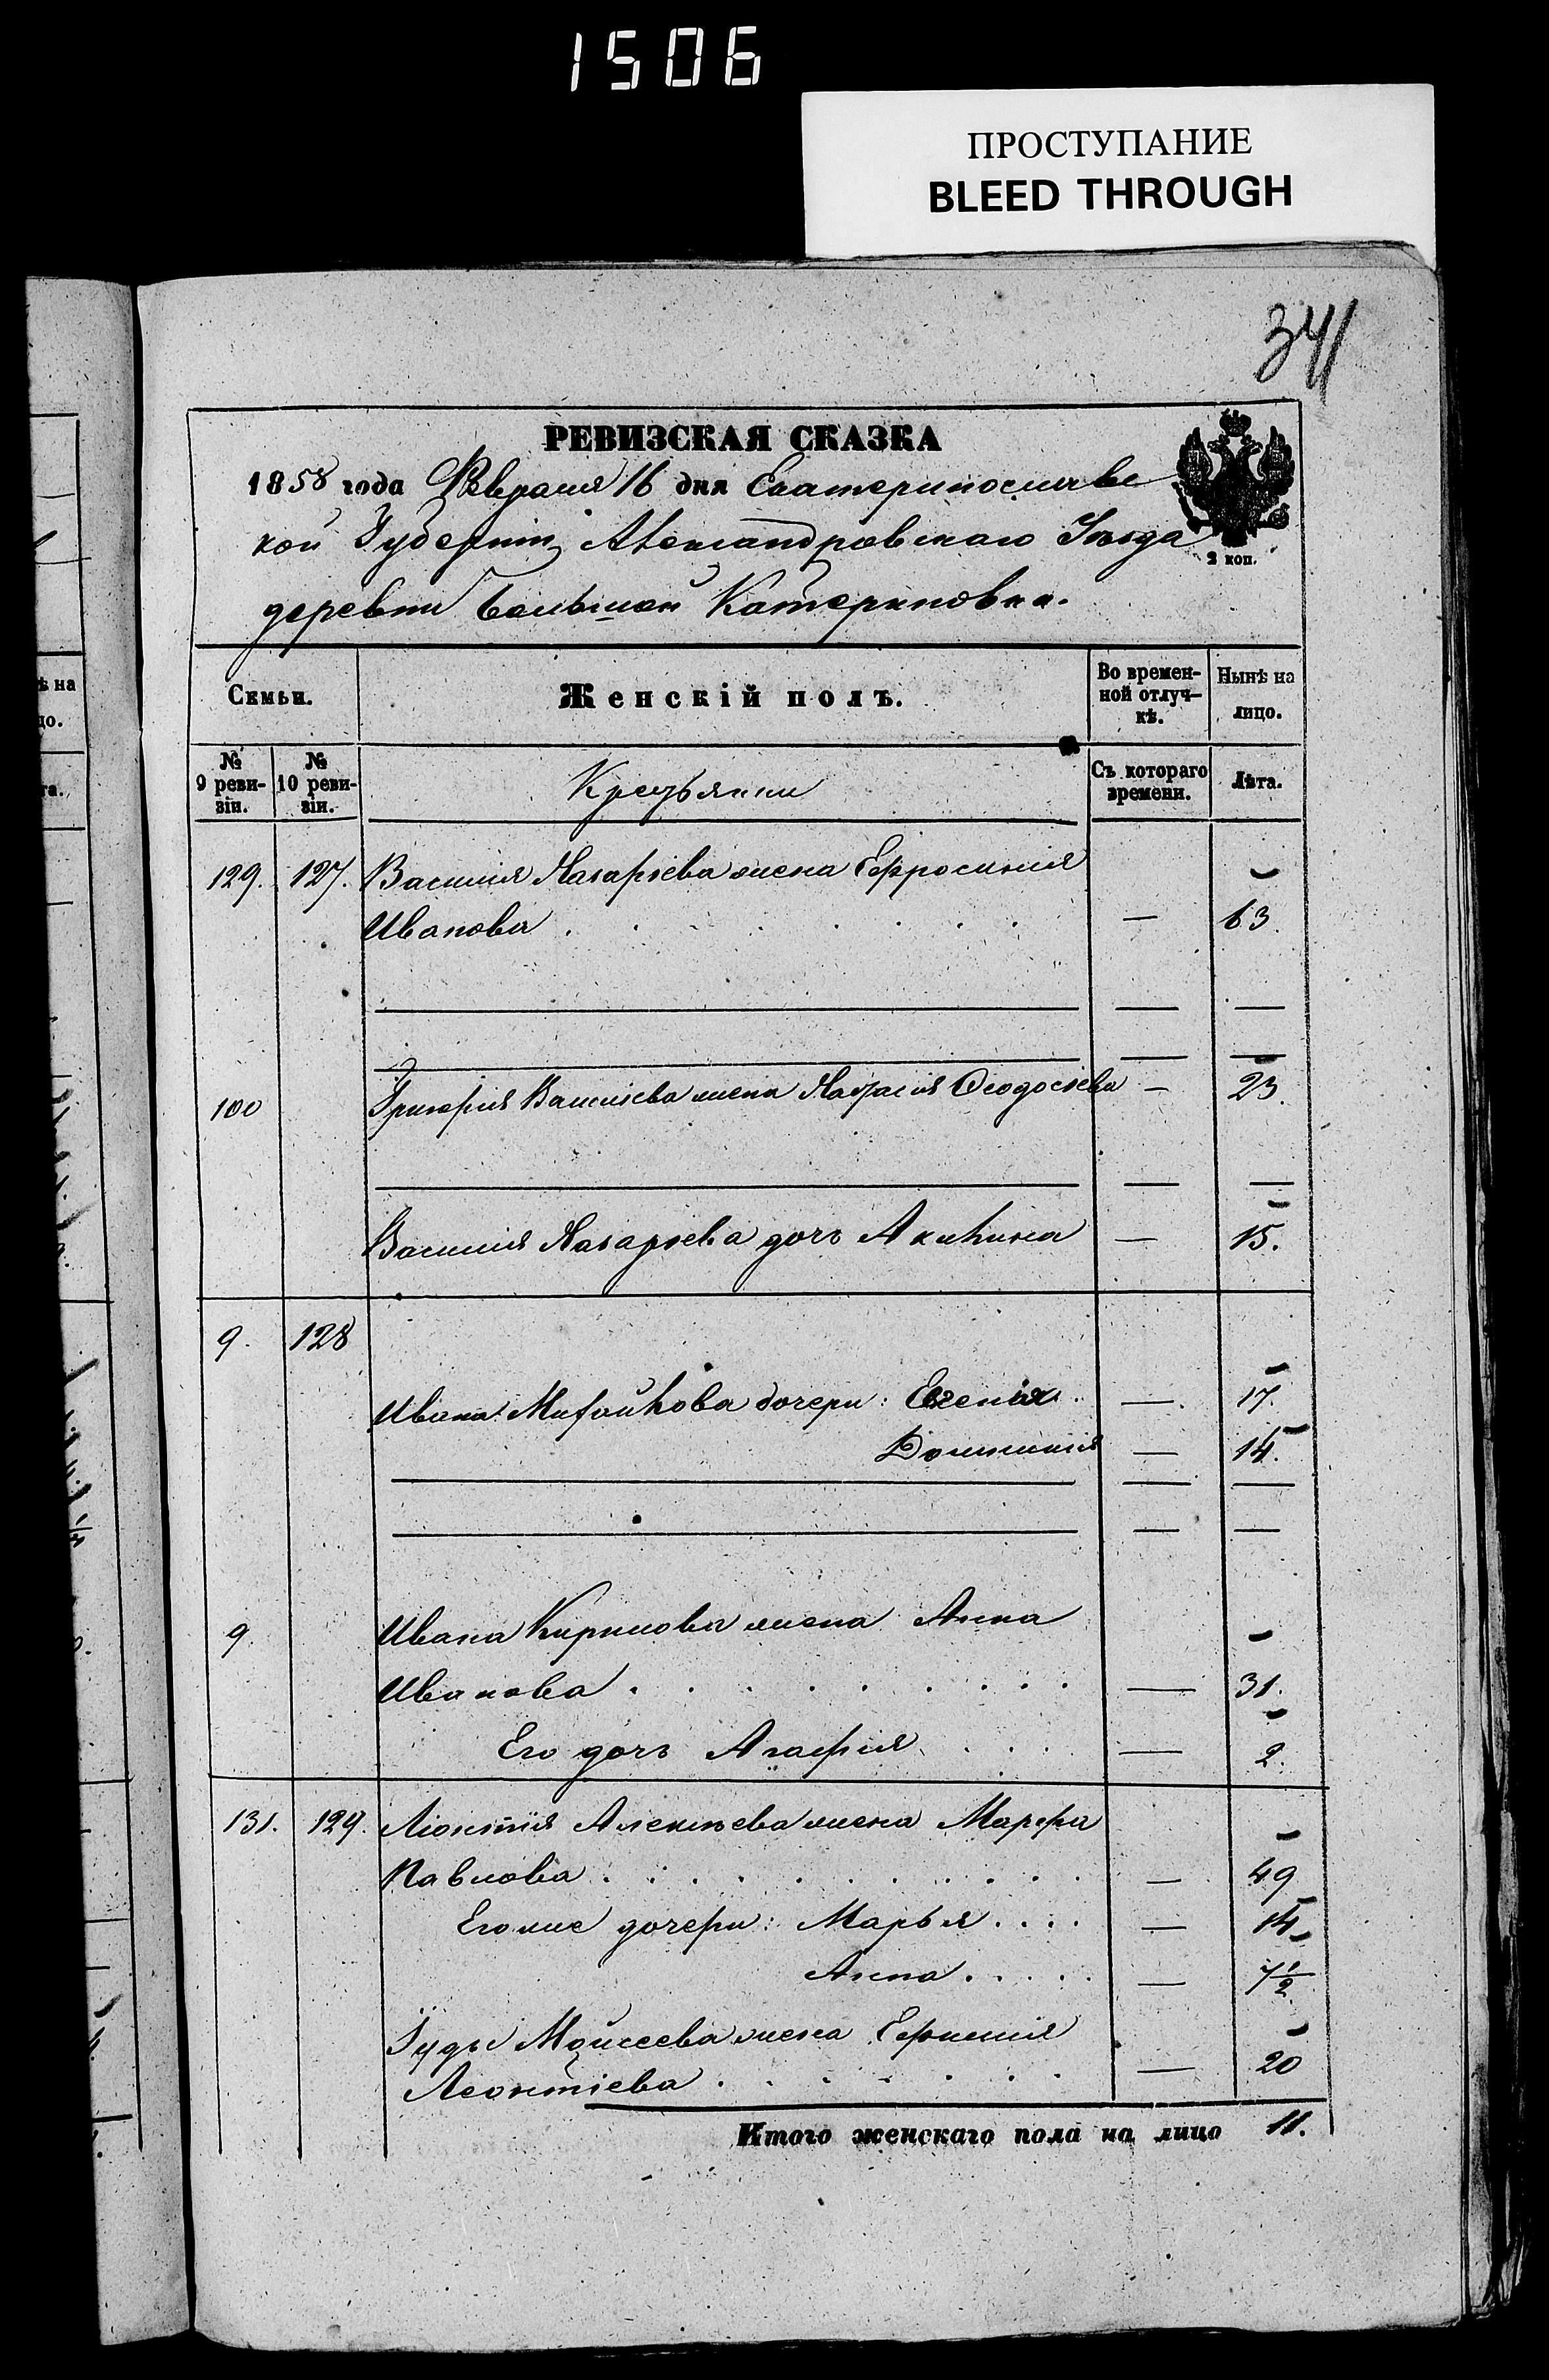 1506
ПРОСТУПАНИЕ
BLEED THROUGH
341
РЕВИЗСКАЯ СКАЗКА
1858 года Февраля 16 дня Екатеринославс
кой Губерніи, Александровскаго Уѣзда
2 коп.
деревни Большой Катериновки.
Семьи. Женскій полъ. Во времен- Нынѣ на
ной отлуч- лицо.
кѣ.
№ № Съ котораго Лѣта.
9 реви- 10 реви- времени.
зіи. зіи.
Крестьянки
129. 127. Василія Назарьева жена Ефросинія
Иванова — 63.
— —
— —
100 Григорія Васильева жена Настасія Ѳеодосіева — 23.
— —
Василія Назарьева дочь Акилина — 15.
9. 128
Ивана Михайлова дочери: Евгенія — 17.
Домникія — 14.
— —
— —
9 Ивана Кирилова жена Анна
Иванова — 31.
Его дочь Агафія — 2.
131. 129. Ліонтія Алексѣева жена Марфа
Павлова — 49
Егоже дочери: Марья — 14
Анна — 7½
Іуды Моисеева жена Ефимія
Леонтіева — 20
Итого женскаго пола на лицо 11.
ѣ на
цо.
та.